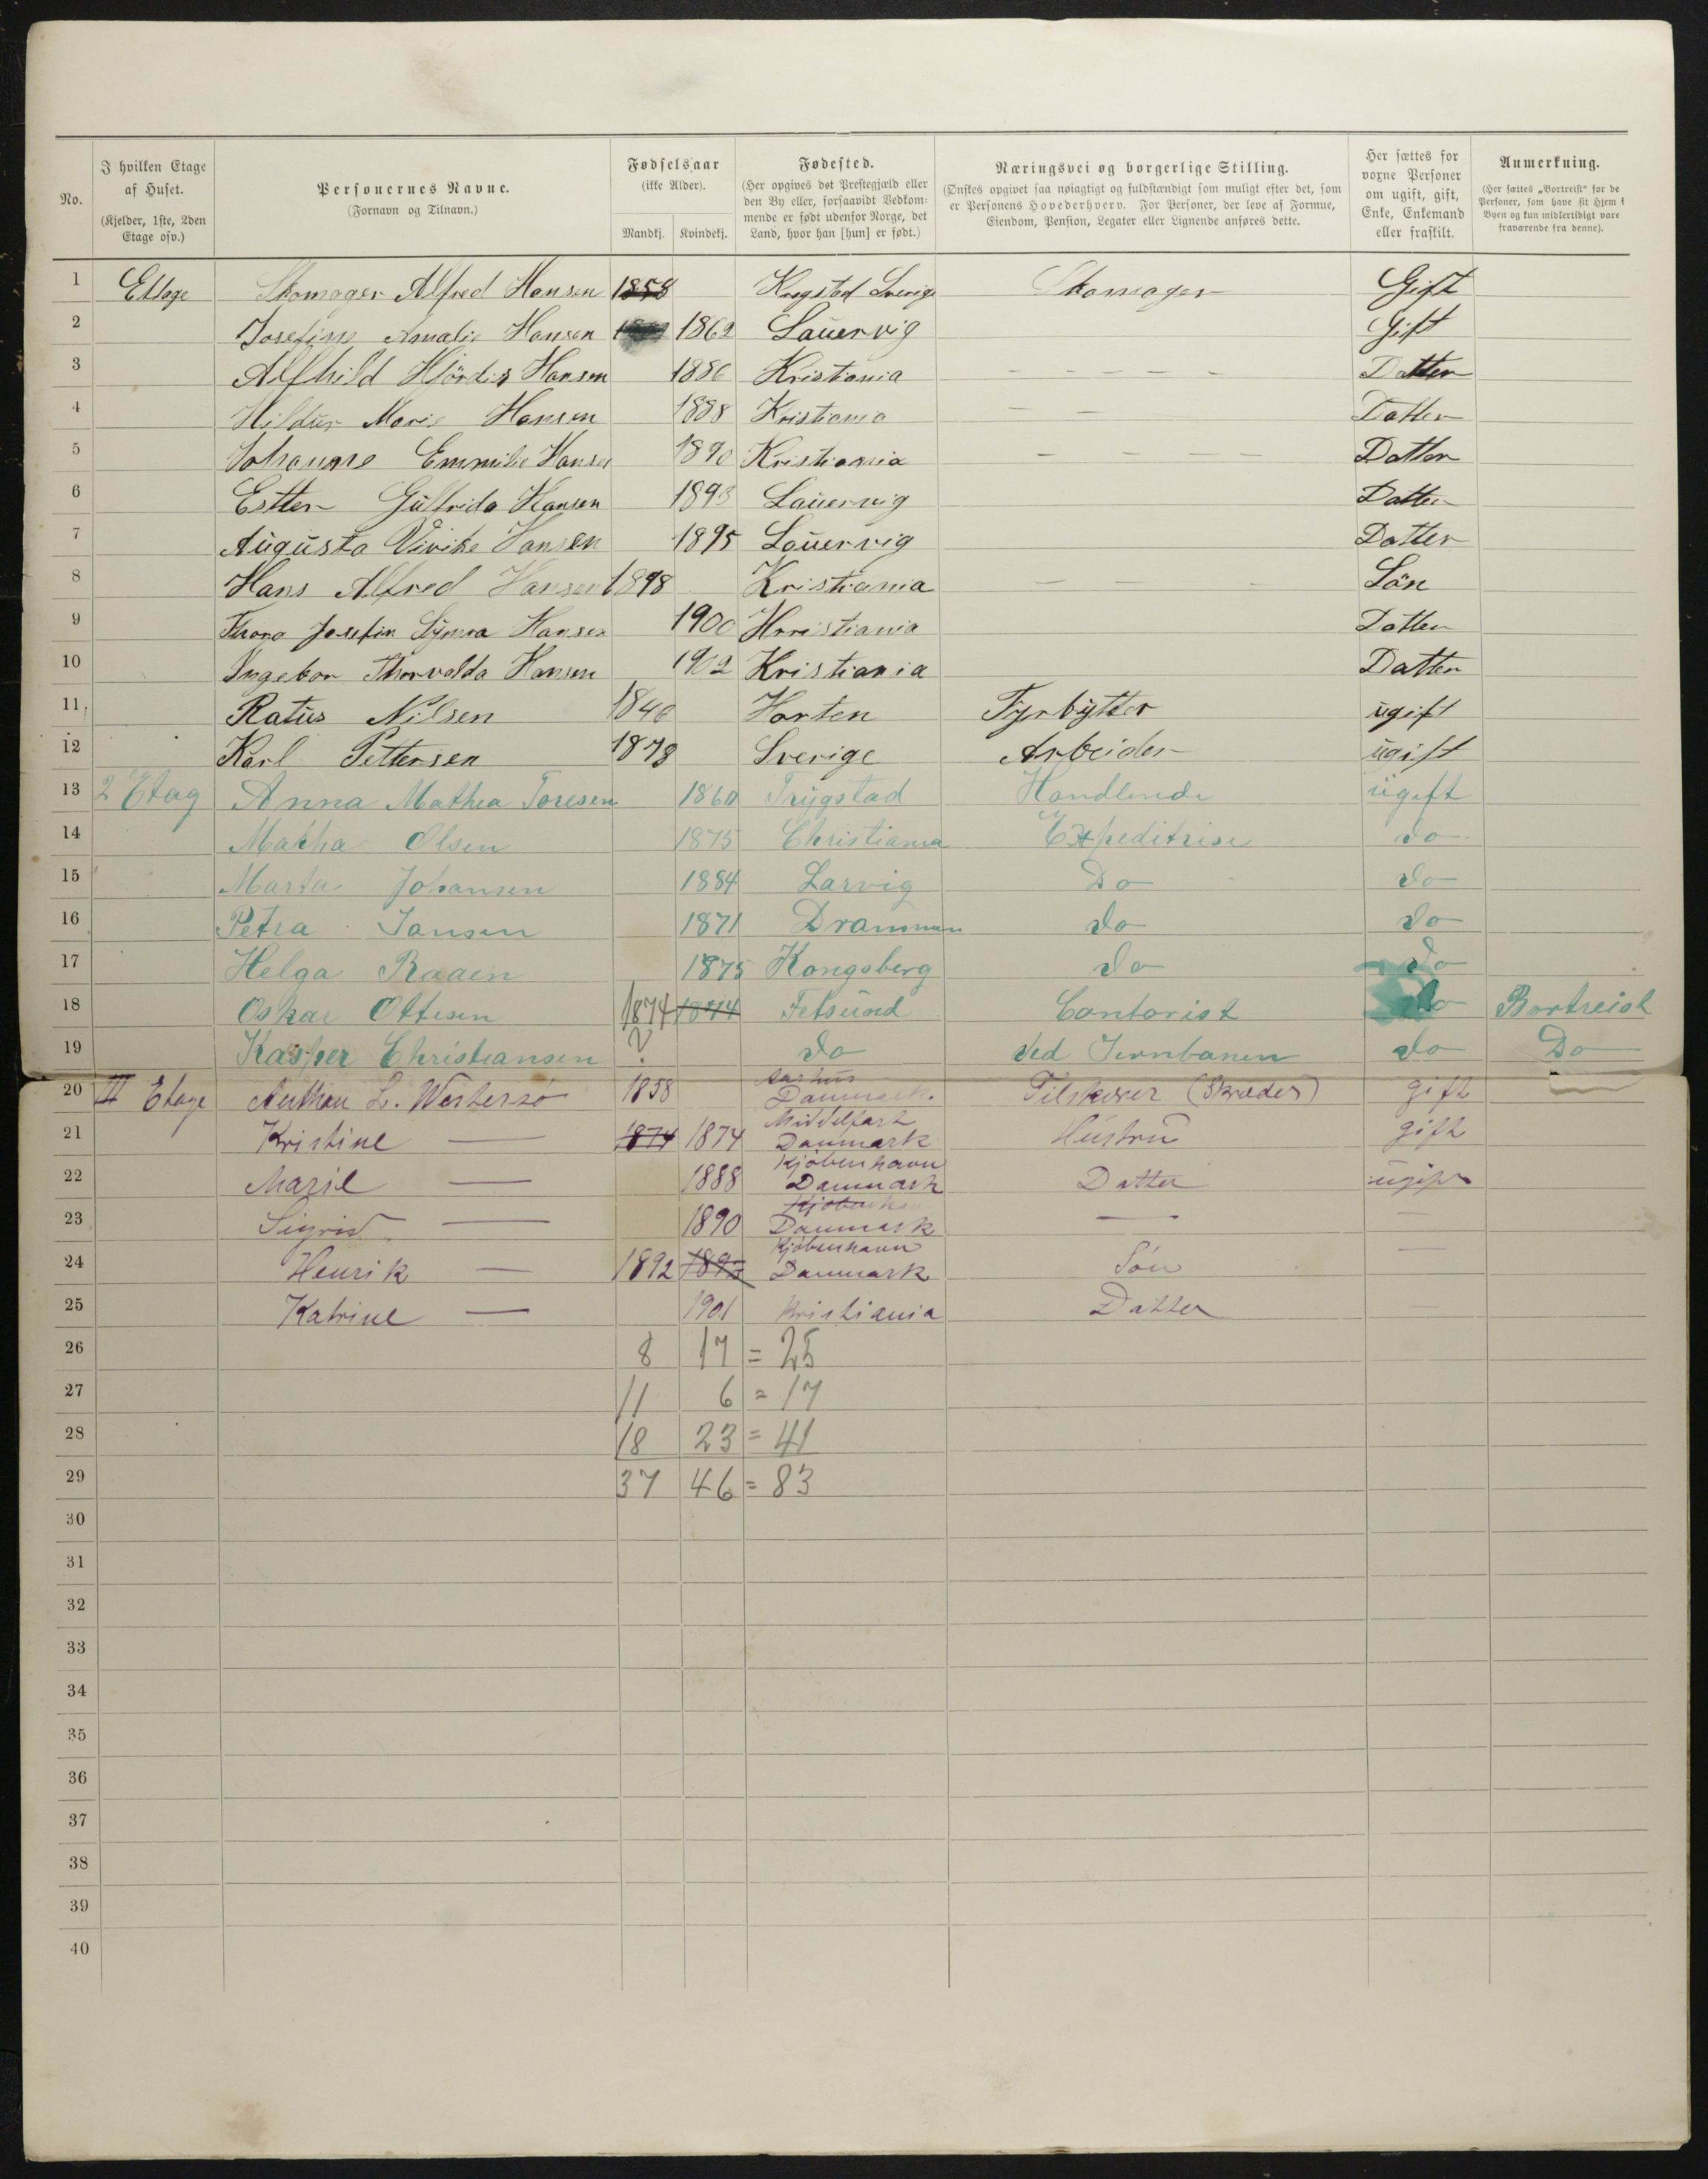 No.
I hvilken Etage af Huset.
(Kjelder, 1ste, 2den Etage osv.)
Personernes Navne.
(Fornavn og Tilnavn.)
Fødselsaar
(ikke Alder).
Mandkj. Kvindekj.
Fødested.
(Her opgives det Prestegjæld eller den By eller, forsaavidt Vedkommende er født udenfor Norge, det Land, hvor han [hun] er født.)
Næringsvei og borgerlige Stilling.
(Ønskes opgivet saa nøiagtigt og fuldstændigt som muligt efter det, som er Personens Hovederhverv. For Personer, der leve af Formue, Eiendom, Pension, Legater eller Lignende anføres dette.
Her sættes for voxne Personer om ugift, gift, Enke, Enkemand eller fraskilt.
Anmerkning.
(Her sættes „Bortreist“ for de Personer, som have sit Hjem i Byen og kun midlertidigt vare fraværende fra denne).
1 Etage Skomager Alfred Hansen 1858 Sverige Skomager Gift
2 Josefine Amalie Hansen 1862 Lauervig Gift
3 Alfhild Hjördis Hansen 1886 Kristiania — — — — — Datter
4 Hildur Marie Hansen 1888 Kristiania — — — Datter
5 Johanne Emmilie Hansen 1890 Kristiania — — — — Datter
6 Estter Gulfrida Hansen 1893 Lauervig Datter
7 Augusta Vivike Hansen 1895 Lauervig Datter
8 Hans Alfred Hansen 1898 Kristiania — — — Sön
9 Thora Josefin Hansen 1900 Kristiania Datter
10 Ingebor Thorvalda Hansen 1902 Kristiania Datter
11 Ratus Nilsen 1846 Horten Fyrbytter ugift
12 Karl Pettersen 1878 Sverige Arbeider ugift
13 2 Etag Anna Mathea Toresen 1860 Trygstad Handlende ugift
14 Matha Olsen 1875 Christiania Expeditrise do
15 Marta Johansen 1884 Larvig Do do
16 Petra Jansen 1871 Drammen do do
17 Helga Raaen 1875 Kongsberg do do
18 Oskar Ottesen 1874 1874 Fetsund Contorist do Bortreist
19 Kasper Christiansen ? do Ved Jernbanen do Do
20 III Etage L. Westersø 1858 Aarhus Danmark. Tilskærer (Skræder) gift
21 Kristine — 1874 1874 Middelfart Danmark Hustru gift
22 Marie — 1888 Kjöbenhavn Danmark Datter ugift
23 Sigrid — 1890 Danmark — —
24 Henrik — 1892 Kjöbenhavn Danmark Sön —
25 Katrine — 1901 Kristiania Datter —
26 8 17 = 25
27 11 6 = 17
28 18 23 = 41
29 37 46 = 83
30
31
32
33
34
35
36
37
38
39
40